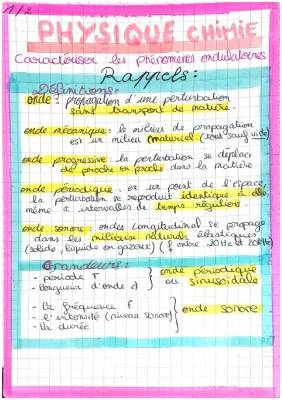 1/2
PHYSIQUE CHIMIE
Caractériser les phénomènes ondulatoires
Rappels:
Définitions:
onde: propagation d'une perturbation
sans transport de matière.
onde mécanique: le milieu de propagation
est un milieu matériel (tout sauf vide)
onde progressive: la perturbation se déplace
de proche en proche dans la matière
onde périodique: en un point de l'espace,
la perturbation se reproduit identique à elle
même à intervalles de temps réguliers.
onde sonore: ondes longitudinal se propage
dans les milieux naturels élastiques
(solide, liquide ou gazeux) (f entre 20Hz et 20kHz)
Grandeurs:
- période T
- longueur d'onde
} onde périodique
ou sinusoïdale
- la fréquence f
- l'intensité (niveau sonore)
- la durée
} onde sonore